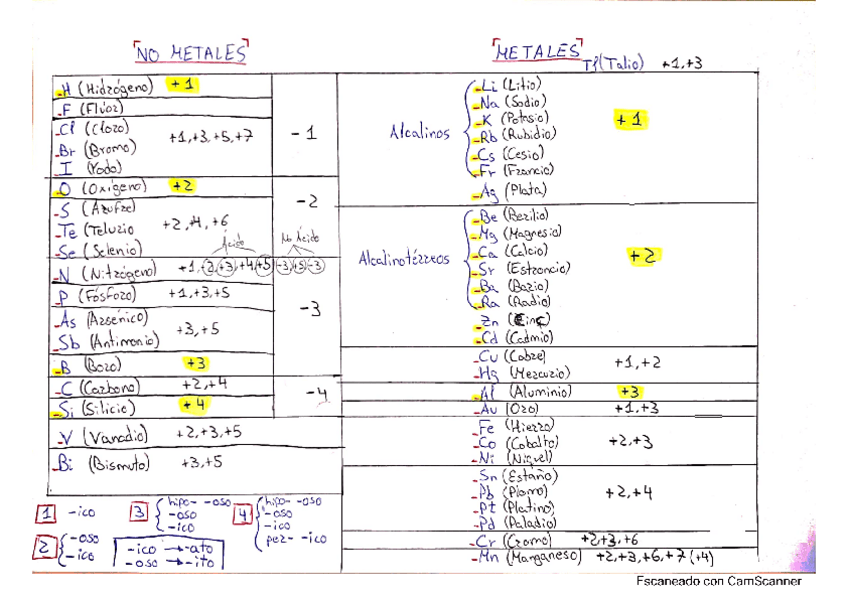 NO METALES
H (Hidrógeno) +1
F (Flúor)
Cl (Cloro)
Br (Bromo) +1,+3,+5,+7
I (Yodo)
-1
O (Oxígeno) +2
S (Azufre)
Te (Teluzio +2,+4,+6
Se (Selenio)
-2
Ácido No Ácido
N (Nitrógeno) +1,+2,+3,+4,+5 -3,+5,-3
P (Fósforo) +1,+3,+5
As (Arsénico)
Sb (Antimonio) +3,+5
B (Boro) +3
-3
C (Carbono) +2,+4
Si (Silicio) +4
-4
V (Vanadio) +2,+3,+5
Bi (Bismuto) +3,+5
1 -ico
2 -oso
-ico
3 hipo- -oso
-oso
-ico
4 hipo- -oso
-oso
-ico
per- -ico
-ico → -ato
-oso → -ito
METALES
Tl (Talio) +1,+3
Alcalinos
Li (Litio)
Na (Sodio)
K (Potasio)
Rb (Rubidio)
Cs (Cesio)
Fr (Francio)
Ag (Plata)
+1
Alcalinotérreos
Be (Berilio)
Mg (Magnesio)
Ca (Calcio)
Sr (Estroncio)
Ba (Bario)
Ra (Radio)
Zn (Cinc)
Cd (Cadmio)
+2
Cu (Cobre)
Hg (Mercurio) +1,+2
Al (Aluminio) +3
Au (Oro) +1,+3
Fe (Hierro)
Co (Cobalto) +2,+3
Ni (Níquel)
Sn (Estaño)
Pb (Plomo) +2,+4
Pt (Platino)
Pd (Paladio)
Cr (Cromo) +2,+3,+6
Mn (Manganeso) +2,+3,+6,+7 (+4)
Escaneado con CamScanner